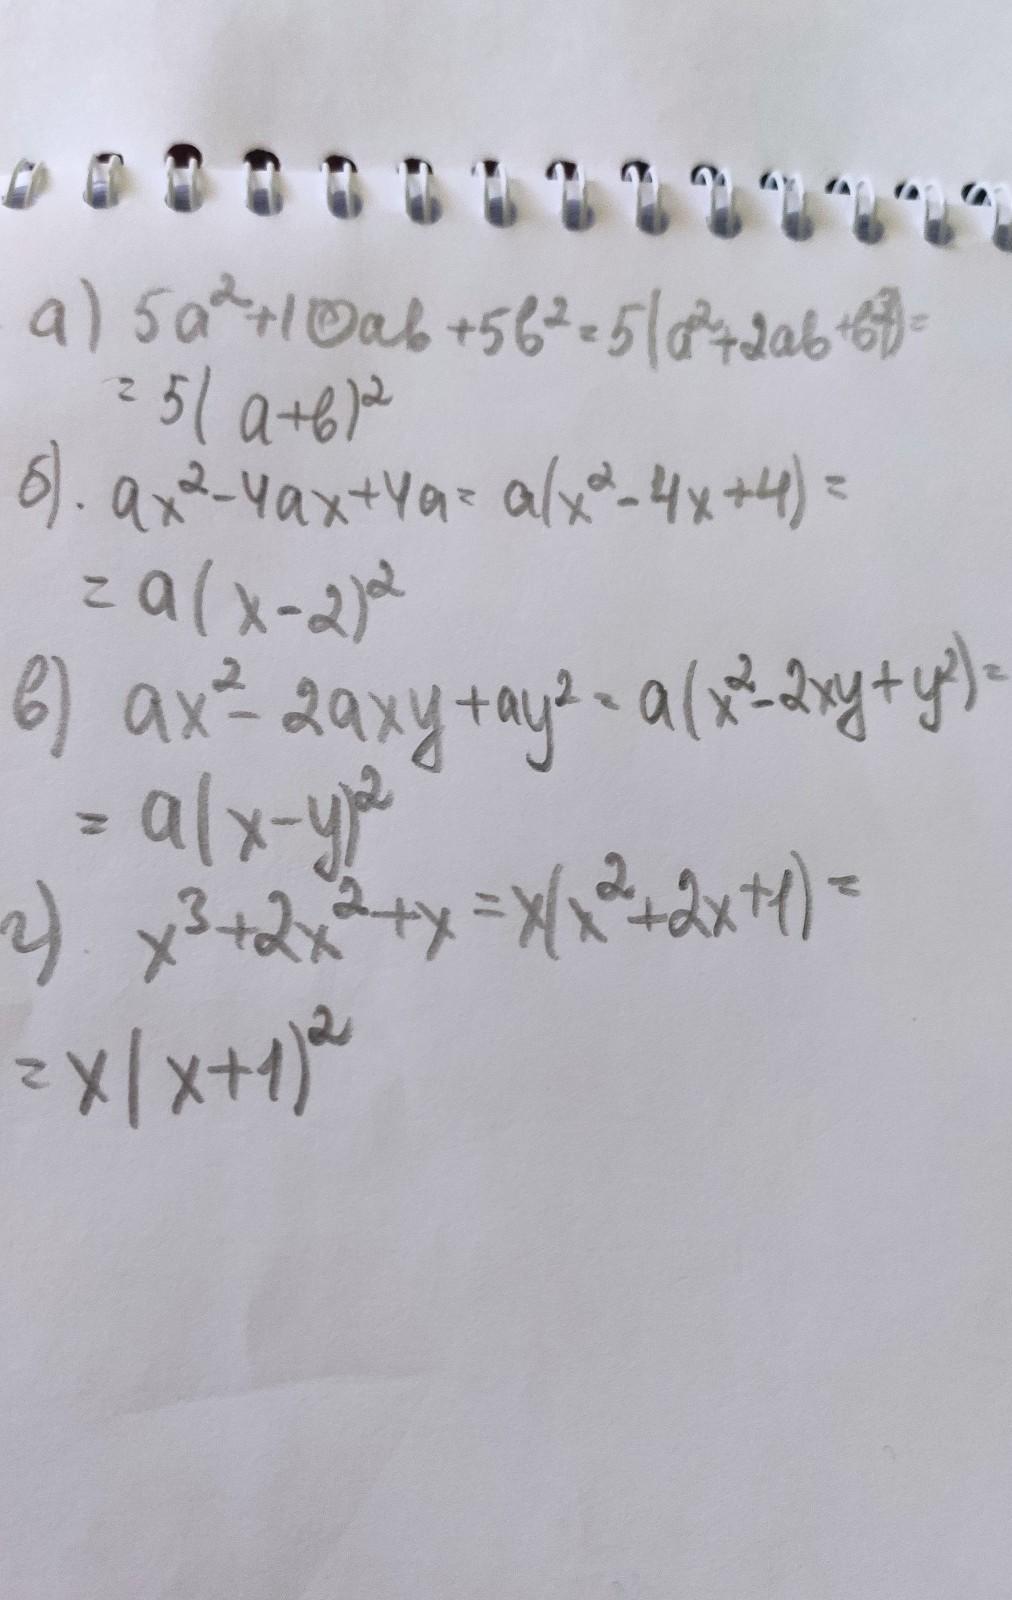 а) 5a²+10ab+5b²=5(a²+2ab+b²)=
=5(a+b)²
б). ax²-4ax+4a= a(x²-4x+4)=
=a(x-2)²
в) ax²-2axy+ay²=a(x²-2xy+y²)=
=a(x-y)²
г). x³+2x²+x=x(x²+2x+1)=
=x(x+1)²